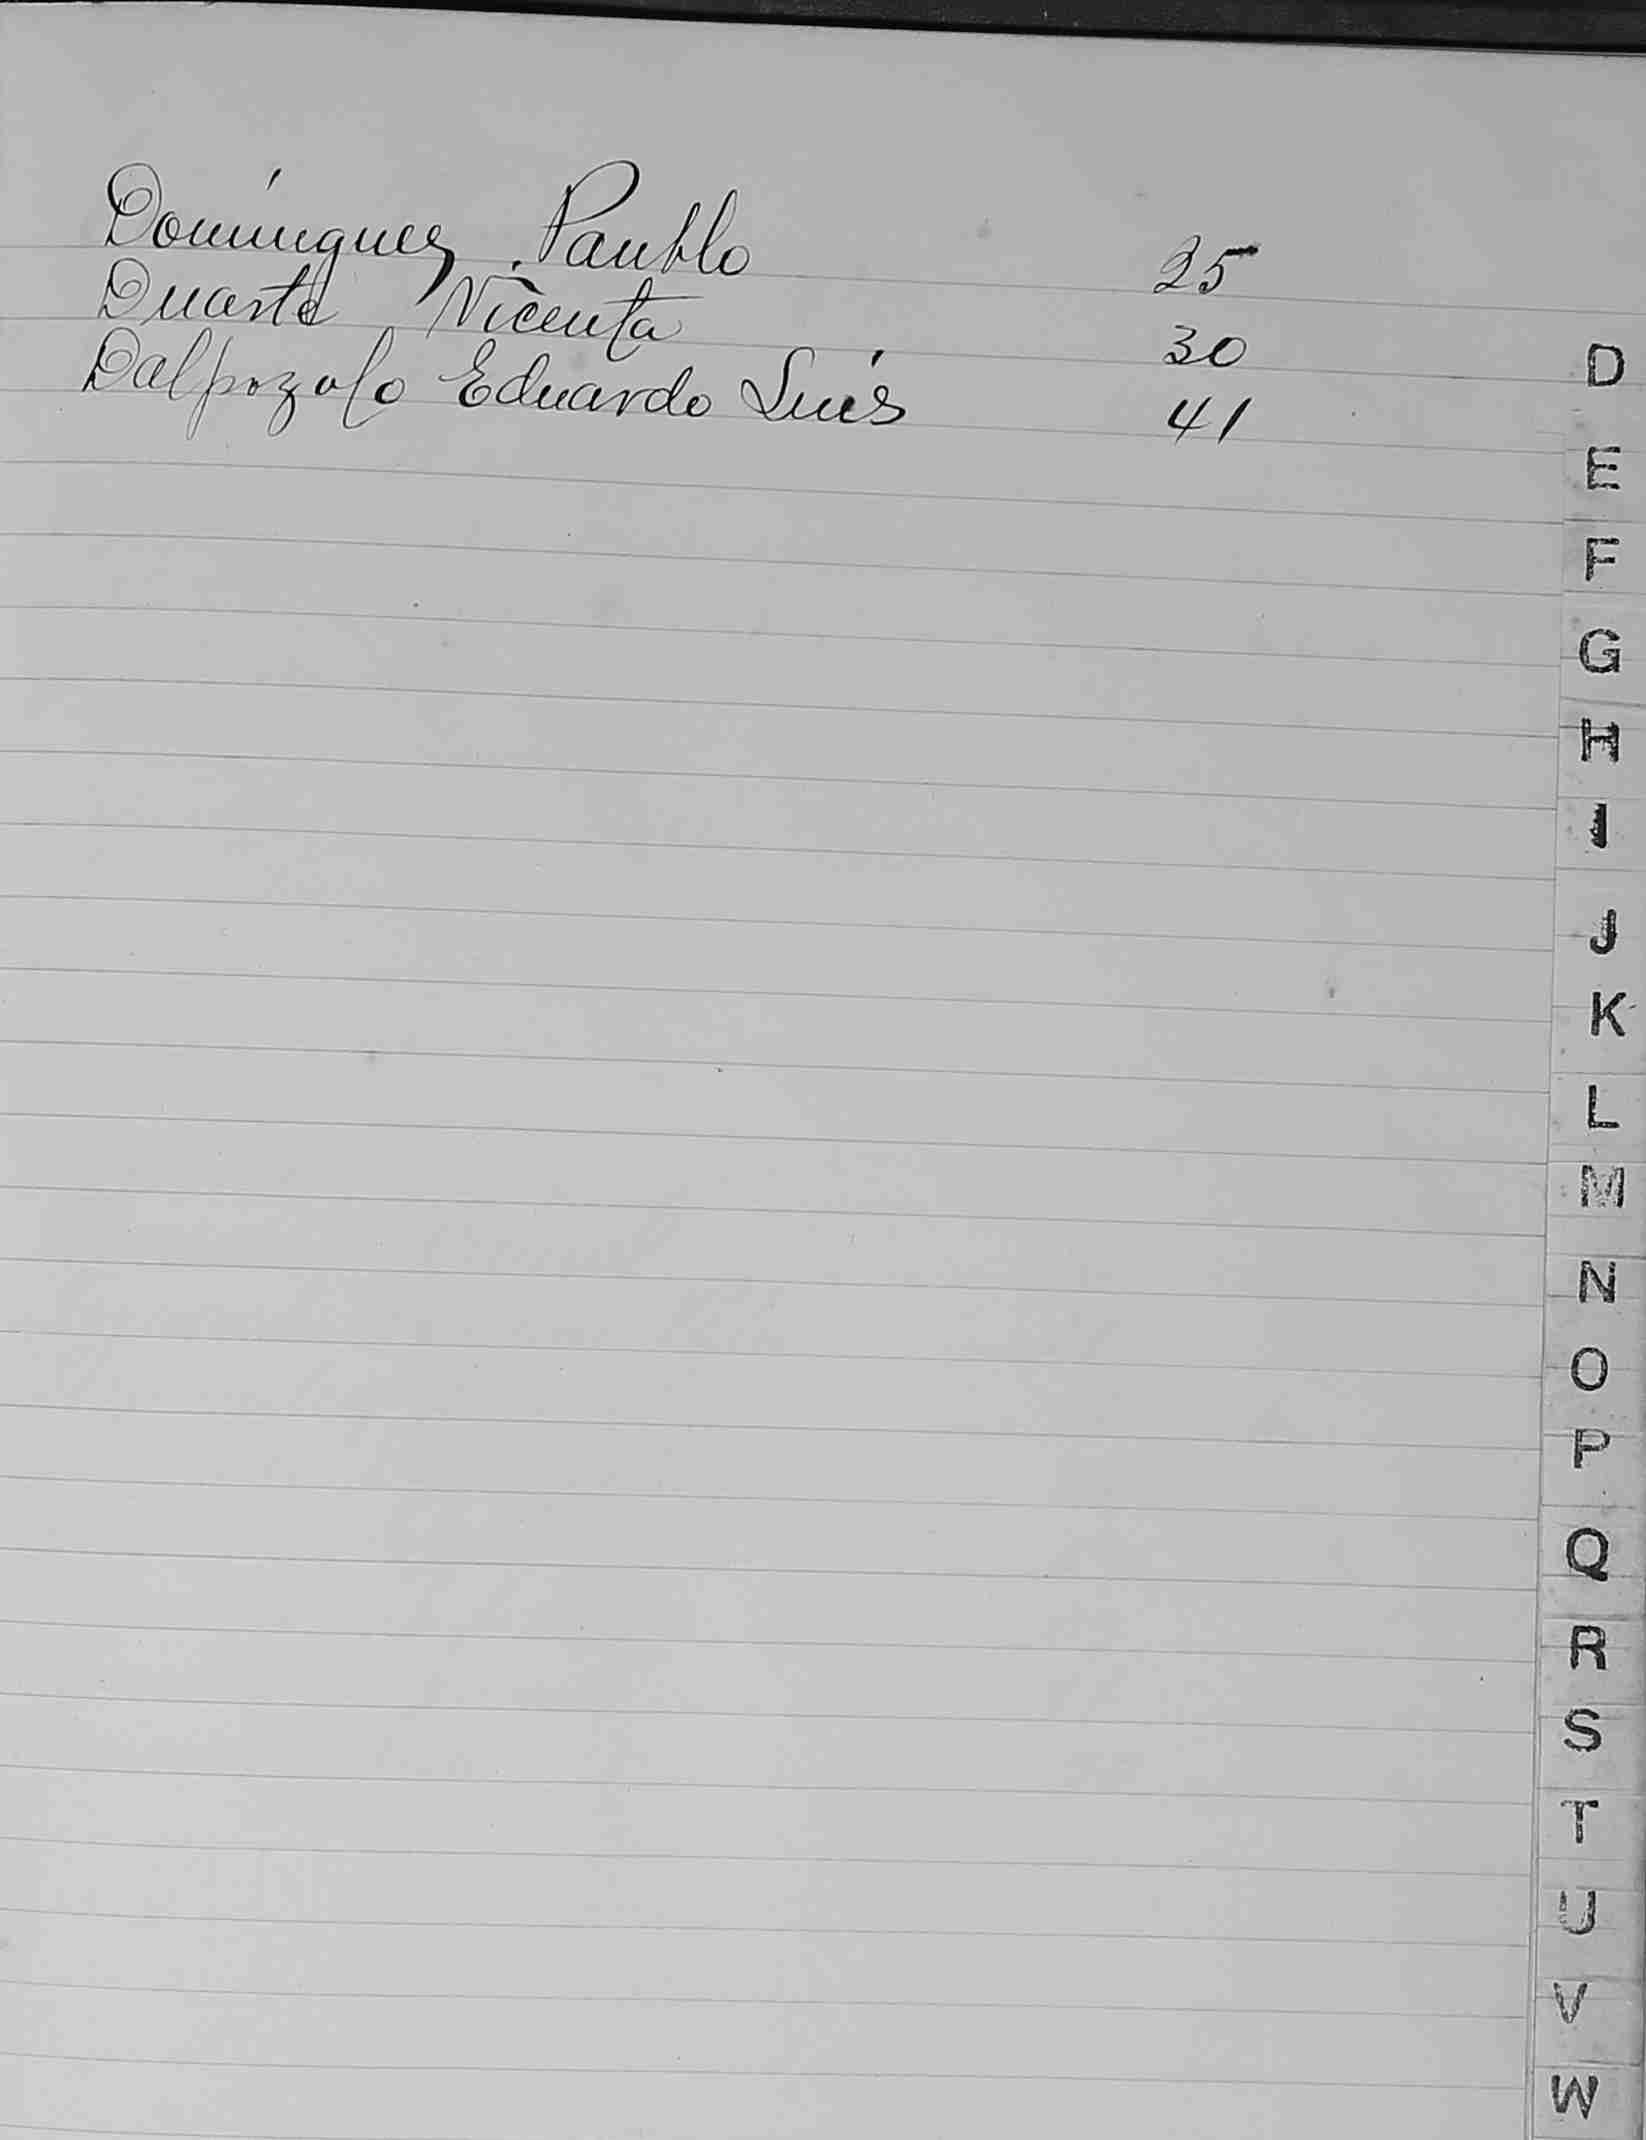 Domínguez Paublo 25
Duarte Vicenta 30
Dalpozolo Eduardo Luís 41
D
E
F
G
H
I
J
K
L
M
N
O
P
Q
R
S
T
U
V
W